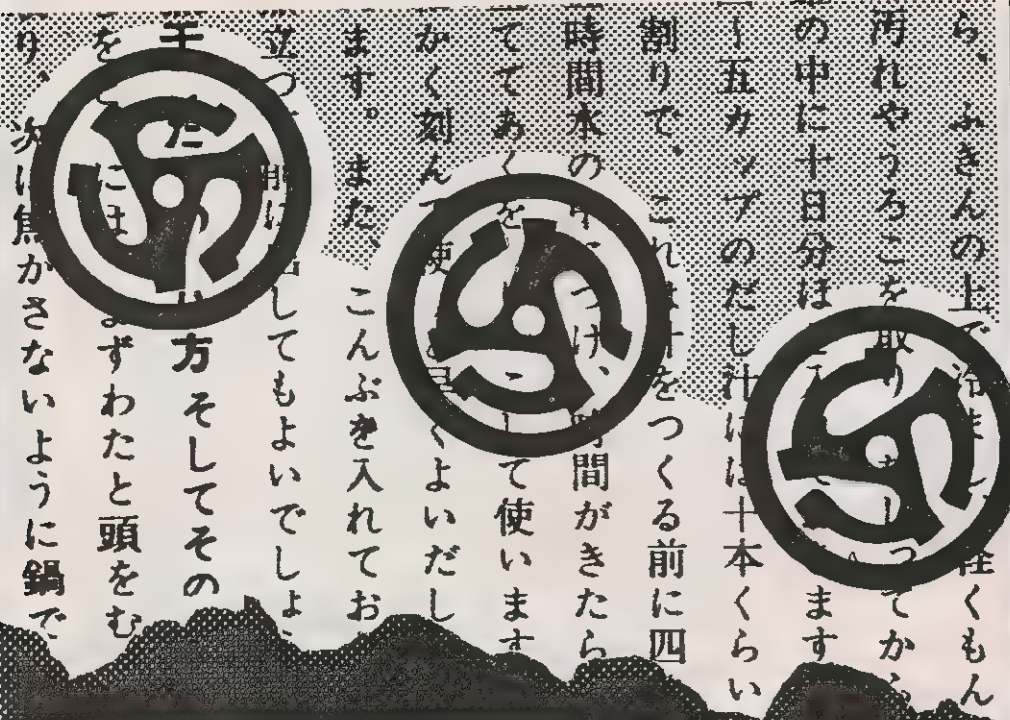 ら、ふきんの上で冷まし、軽くもん
れやうろこを取り てから
の中に十日分ほ ます
〜五カップのだし汁には十本くらい
割りで、これは汁をつくる前に四
時間水の中につけ、時間がきたら
てあくを して使います
かく刻んで よいだし
ます。また、こんぶを入れてお
立つ 前に出してもよいでしょ
方 そしてその
を にはまずわたと頭をむ
り、次に焦がさないように鍋で